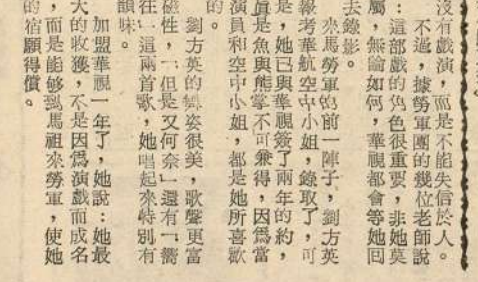 沒有戲演，而是不能失信於人。
不過，據勞軍團的幾位老師說
：這部戲的角色很重要，非她莫
屬，無論如何，華視都會等她回
去錄影。
來馬勞軍的前一陣子，劉方英
報考華航空中小姐，錄取了，可
是，她已與華視簽了兩年的約，
眞是魚與熊掌不可兼得，因爲當
演員和空中小姐，都是她所喜歡
的。
劉方英的舞姿很美，歌聲更富
磁性，「但是又何奈」還有「嚮
往」這兩首歌，她唱起來特別有
韻味。
加盟華視一年了，她說：她最
大的收獲，不是因爲演戲而成名
，而是能够到馬祖來勞軍，使她
的宿願得償。